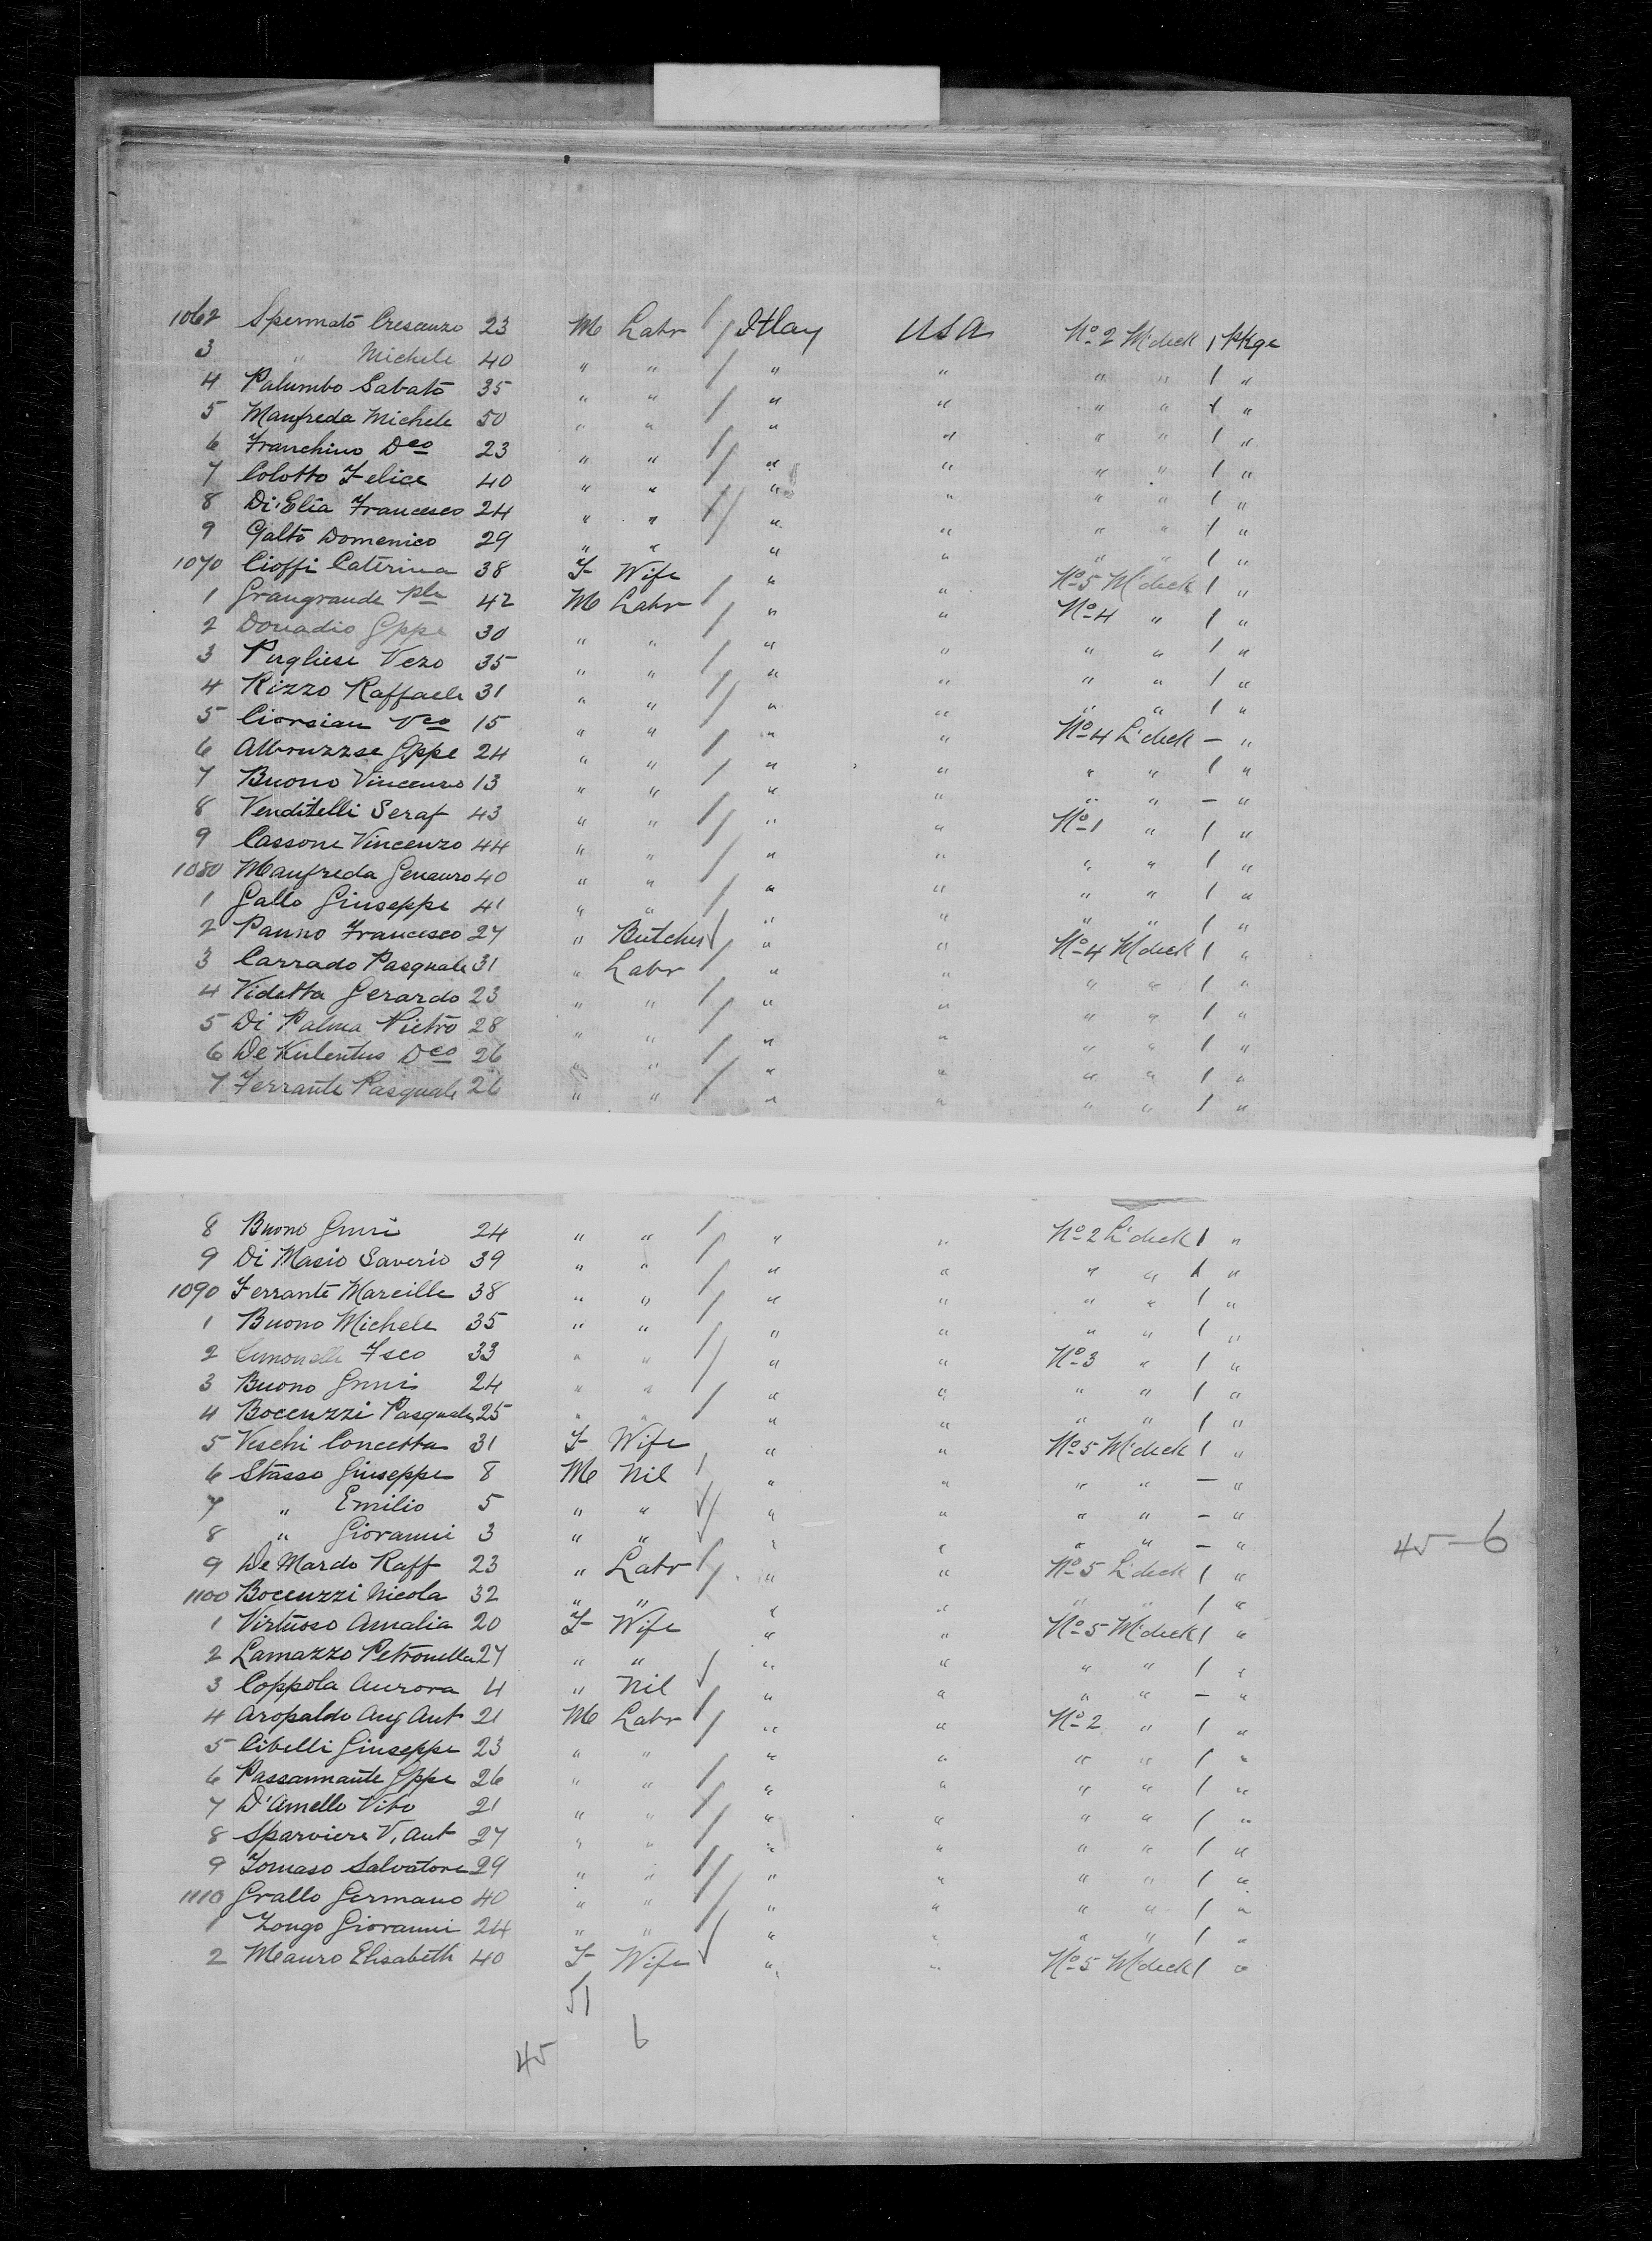 1062 Spermato Crescenzo 23 M Labr / Itlay USA No 2 M'deck 1 Pkge
3 " Michele 40 " " / " " " " 1 "
4 Palumbo Sabato 35 " " / " " " " 1 "
5 Manfreda Michele 50 " " / " " " " 1 "
6 Franchino Dco 23 " " / " " " " 1 "
7 Colotto Felice 40 " " / " " " " 1 "
8 Di Elia Francesco 24 " " / " " " " 1 "
9 Galto Domenico 29 " " / " " " " 1 "
1070 Cioffi Caterina 38 F Wife " " No 5 M'deck 1 "
1 Grangrande Ple 42 M Labr / " " No 4 " 1 "
2 Donadio Gppe 30 " " / " " " " 1 "
3 Pugliese Vezo 35 " " / " " " " 1 "
4 Rizzo Raffaele 31 " " / " " " " 1 "
5 Ciorsian Vco 15 " " / " " No 4 L'deck - "
6 Albruzzse Gppe 24 " " / " " " " 1 "
7 Buono Vincenzo 13 " " / " " " " - "
8 Venditelli Seraf 43 " " / " " No 1 " 1 "
9 Cassone Vincenzo 44 " " / " " " " 1 "
1080 Manfreda Genauro 40 " " / " " " " 1 "
1 Gallo Giuseppe 41 " " / " " " " 1 "
2 Panno Francesco 27 " Butcher / " " No 4 M'deck 1 "
3 Carrado Pasquale 31 " Labr " " " " 1 "
4 Videtta Gerardo 23 " " / " " " " 1 "
5 Di Palma Pietro 28 " " / " " " " 1 "
6 De Dco 26 " " / " " " " 1 "
7 Ferrante Pasquale 26 " " / " " " " 1 "
8 Buono Gnni 24 " " / " " No 2 L'deck 1 "
9 Di Masio Saverio 39 " " / " " " " 1 "
1090 Ferrante Mareille 38 " " / " " " " 1 "
1 Buono Michele 35 " " / " " " " 1 "
2 Fsco 33 " " / " " No 3 " 1 "
3 Buono Gnni 24 " " / " " " " 1 "
4 Boccuzzi Pasquale 25 " " / " " " " 1 "
5 Veschi Concetta 31 F Wife " " No 5 M'deck 1 "
6 Stasso Giuseppe 8 M Nil / " " " " - "
7 " Emilio 5 " " / " " " " - "
8 " Giovanni 3 " " / " " " " - "
45 - 6
9 De Mardo Raff 23 " Labr / " " No 5 L'deck 1 "
1100 Boccuzzi Nicola 32 " " / " " " " 1 "
1 Virtuoso Amalia 20 F Wife " " No 5 M'deck 1 "
2 Lamazzo Petronella 27 " " " " " " 1 "
3 Coppola Aurora 4 " Nil / " " " " - "
4 Aropaldo Aug Ant 21 M Labr / " " No 2 " 1 "
5 Cibelli Giuseppe 23 " " / " " " " 1 "
6 Passannante Gppe 26 " " / " " " " 1 "
7 D'Amello Vito 21 " " / " " " " 1 "
8 Sparviere V. Ant 27 " " / " " " " 1 "
9 Tomaso Salvatore 29 " " / " " " " 1 "
1110 Grallo Germano 40 " " / " " " " 1 "
1 Longo Giovanni 24 " " / " " " " 1 "
2 Mauro Elisabeth 40 F Wife / " " No 5 M'deck 1 "
51
45 6